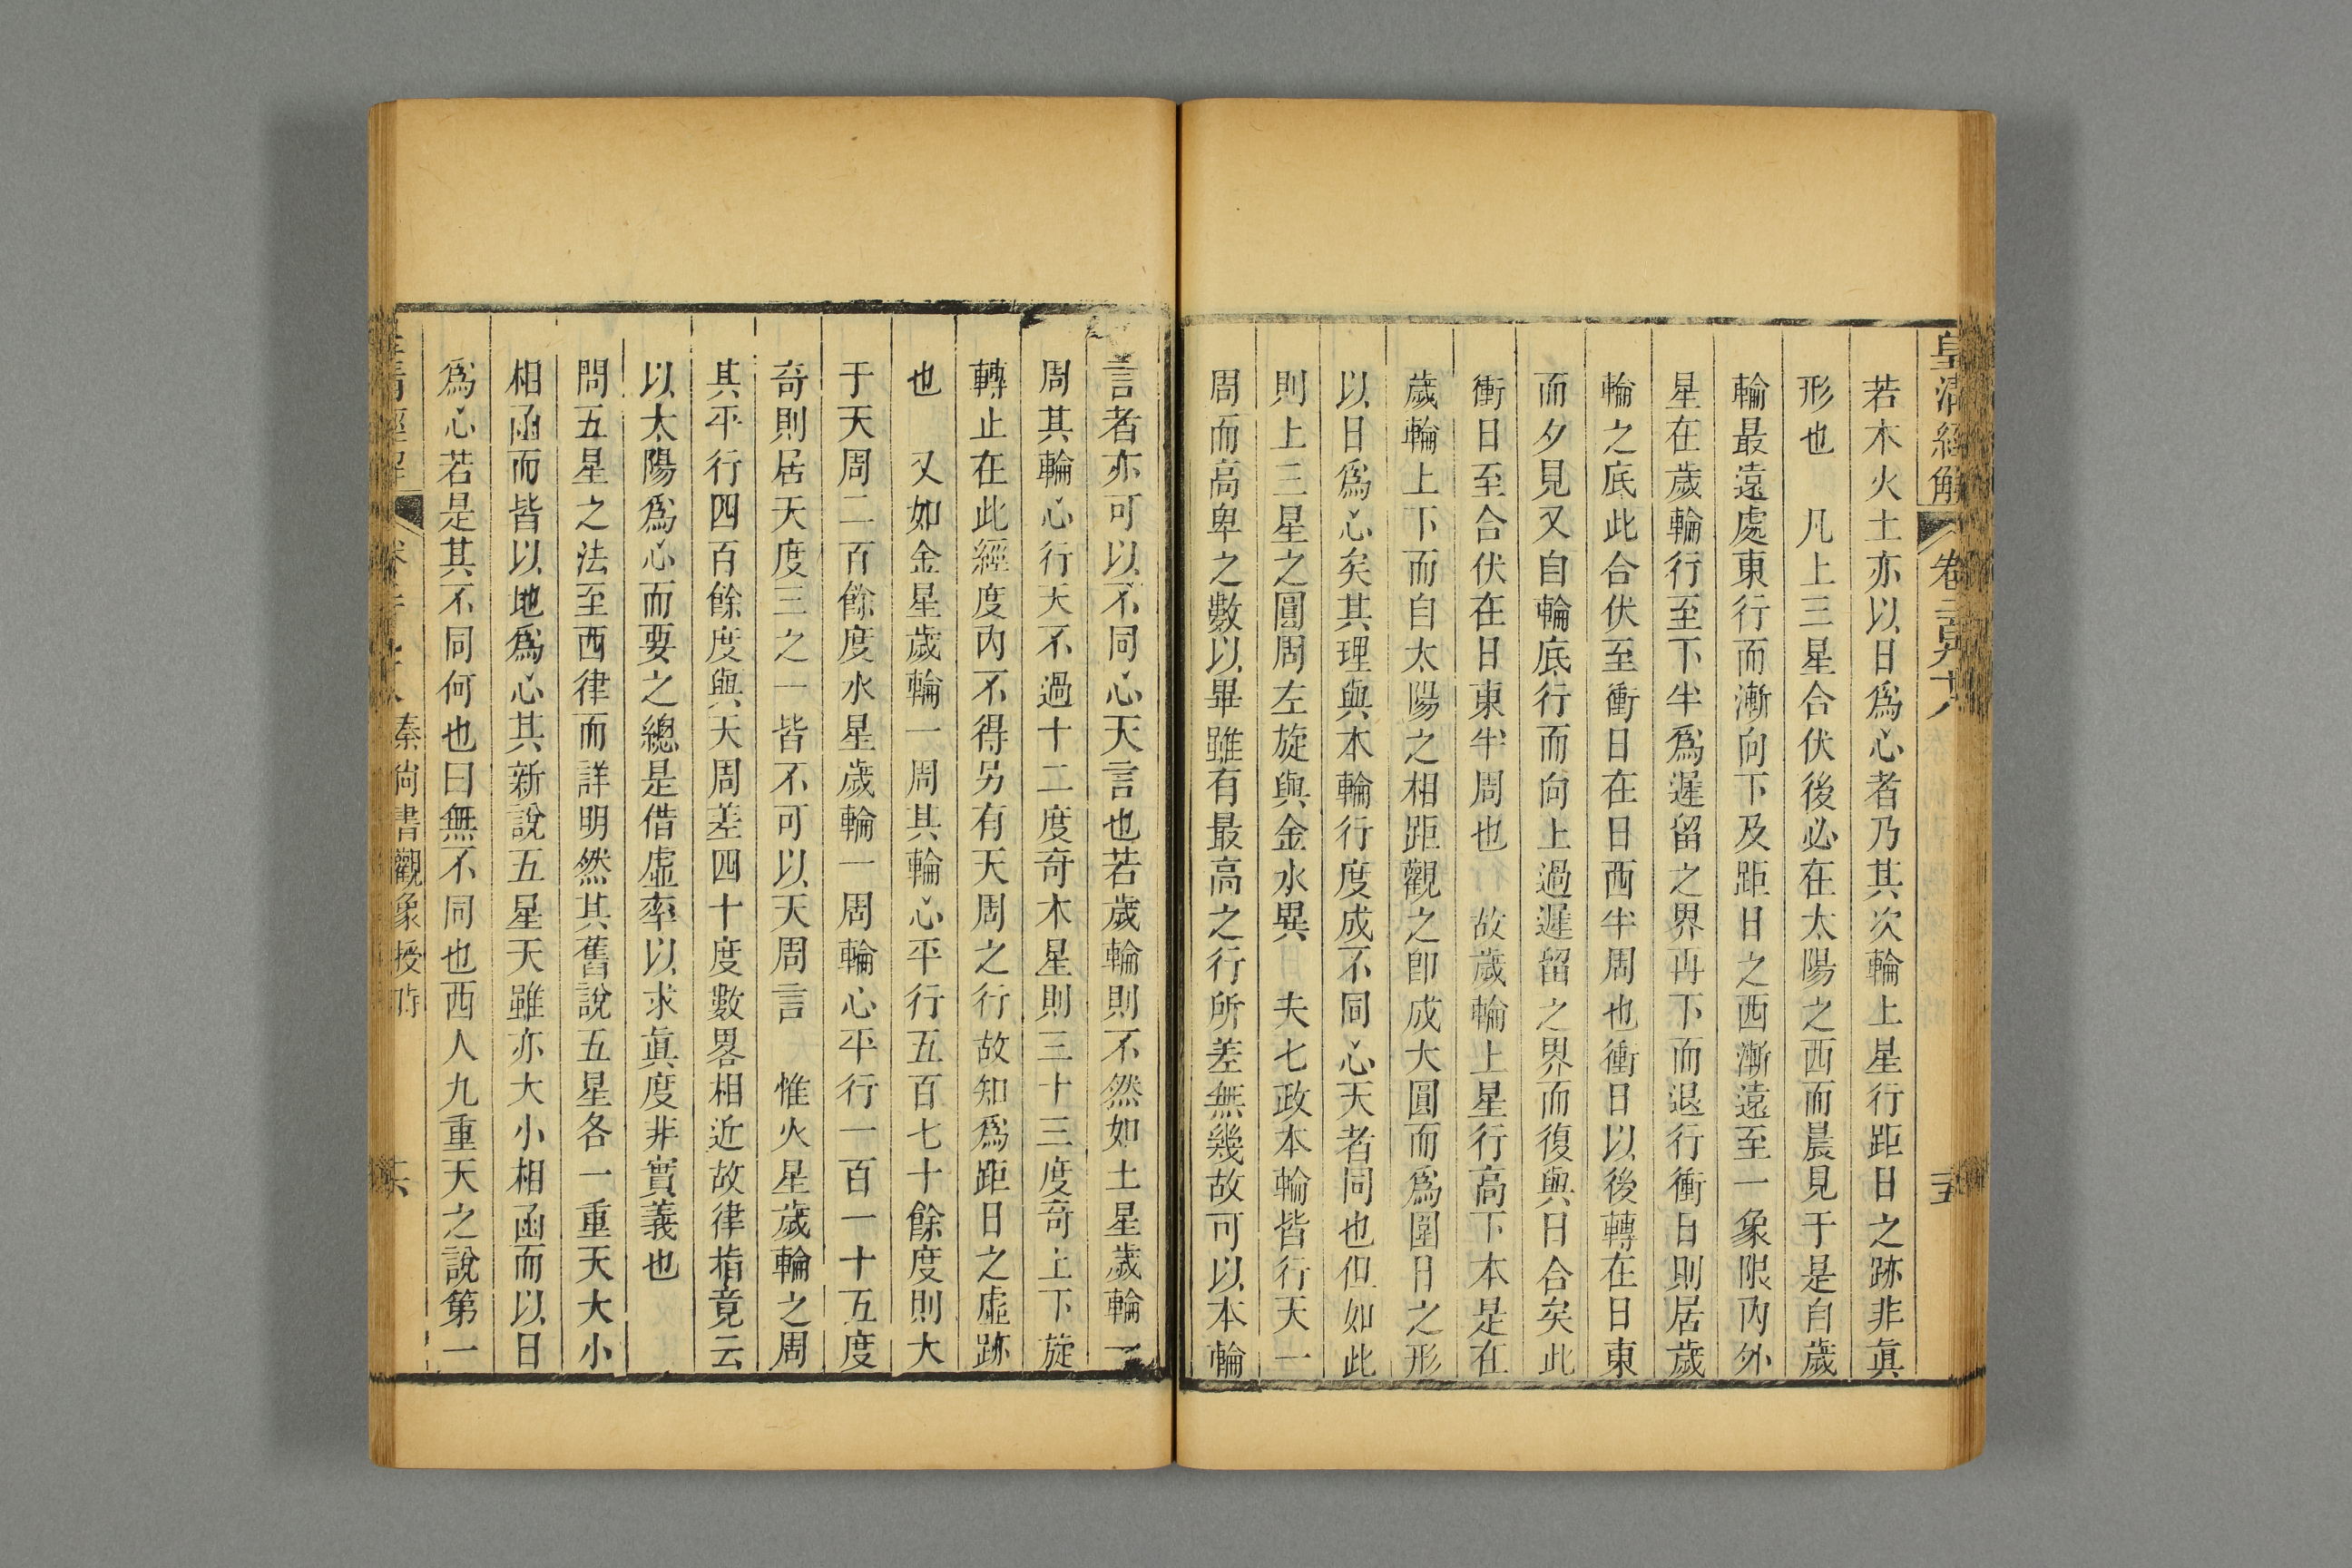 皇清經解 卷二百九十八 十五
若木火土亦以日爲心者乃其次輪上星行距日之跡非眞
形也 凡上三星合伏後必在太陽之西而晨見于是自歲
輪最遠處東行而漸向下及距日之西漸遠至一象限內外
星在歲輪行至下半爲遲留之界再下而退行衝日則居歲
輪之底此合伏至衝日在日西半周也衝日以後轉在日東
而夕見又自輪底行而向上過遲留之界而復與日合矣此
衝日至合伏在日東半周也 故歲輪上星行高下本是在
歲輪上下而自太陽之相距觀之即成大圓而爲圍日之形
以日爲心矣其理與本輪行度成不同心天者同也但如此
則上三星之圓周左旋與金水異 夫七政本輪皆行天一
周而高卑之數以畢雖有最高之行所差無幾故可以本輪
言者亦可以不同心天言也若歲輪則不然如土星歲輪一
周其輪心行天不過十二度奇木星則三十三度奇上下旋
轉止在此經度內不得另有天周之行故知爲距日之虛跡
也 又如金星歲輪一周其輪心平行五百七十餘度則大
于天周二百餘度水星歲輪一周輪心平行一百一十五度
奇則居天度三之一皆不可以天周言 惟火星歲輪之周
其平行四百餘度與天周差四十度數畧相近故律指竟云
以太陽爲心而要之總是借虛率以求眞度非實義也
問五星之法至西律而詳明然其舊說五星各一重天大小
相函而皆以地爲心其新說五星天雖亦大小相函而以日
爲心若是其不同何也曰無不同也西人九重天之說第一
清經解 秦尙書觀象授時